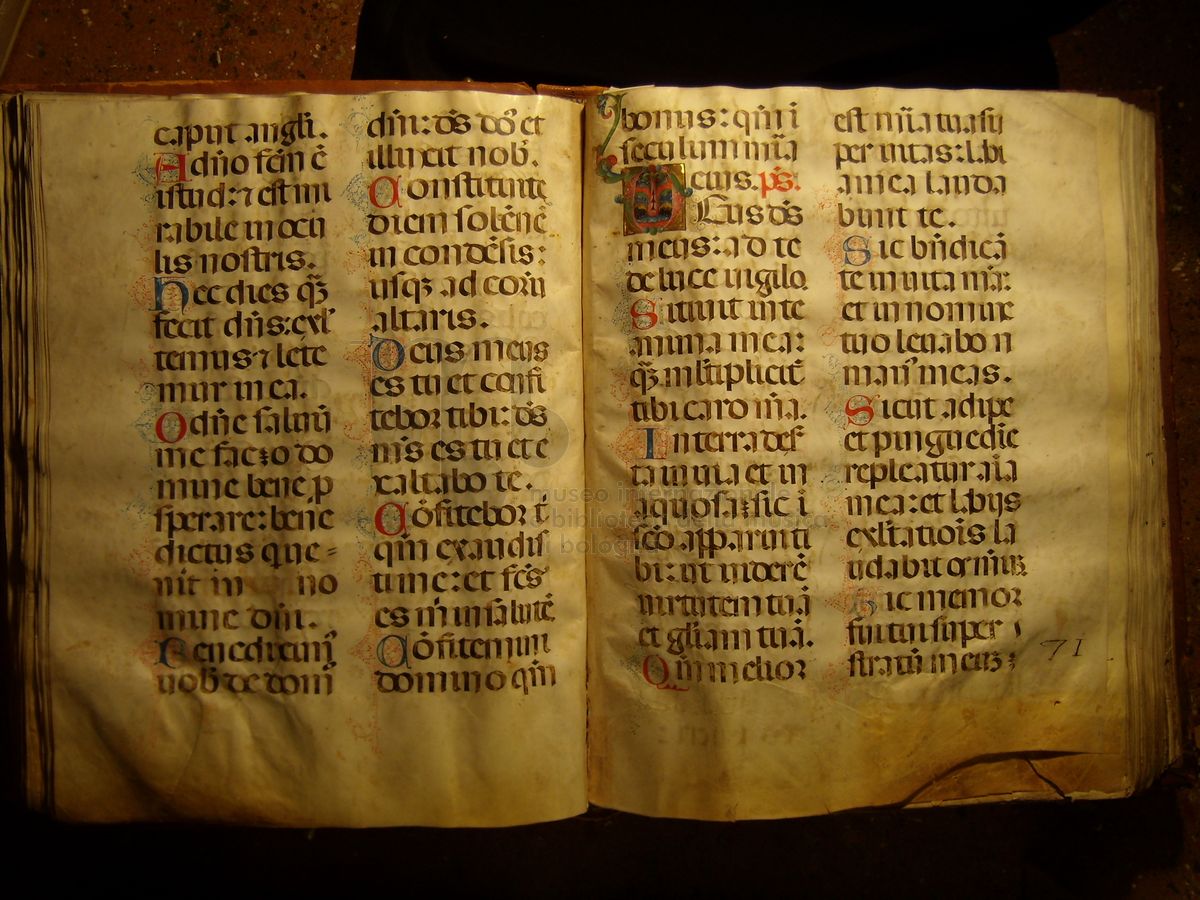 caput angłi.
Adño fcm̃ ē
istud: ⁊ est mi
rabile in ocu
lis nostris.
Hec dies qꝫ
fecit dñs: exl
temus ⁊ lete
mur in ea.
O dñe saluũ
me fac: o do
mine bene ꝓ
sperare: bene
dictus que =
nit in no
mine dñi.
Benediximꝰ
uobˢ de domͥ
dñi: d̃s dõ et
illuxit nobˢ.
Constituite
diem solēnē
in condēsis:
usqꝫ ad cornu
altaris.
Deus meus
es tu et confi
tebor tibi: d̃s
mˢ es tu et e
xaltabo te.
Cōfitebor t̃
qm̃ exaudis
ti me: et fcs̃
es m̃ in salutē.
Cōfitemini
domino qm̃
bonus: qm̃ ĩ
seculum mĩa
eius. pˢ.
Deus d̃s
meus: ad te
de luce uigilo.
Sitiuit in te
anima mea:
qꝫ mltipliciť
tibi caro m̃a.
In terra desˀ
ta inuia et in
aquosa: sic ĩ
sc̃o apparui ti
bi: ut uiderē
uirtutem tuã
et glĩam tuã.
Qm̃ melior
est mĩa tua suꝑ
per uitas: labi
a mea lauda
bunt te.
Sic bñdicã
te in uita m̃a:
et in nomine
tuo leuabo m̃
manˢ meas.
Sicut adipe
et pinguedĩe
repleatur aĩa
mea: et labijs
exltatiois la
udabit os m̃ū.
Sic memor
fui tui super
stratũ meũ:
71
museo internazionale
biblioteca della musica
di bologna